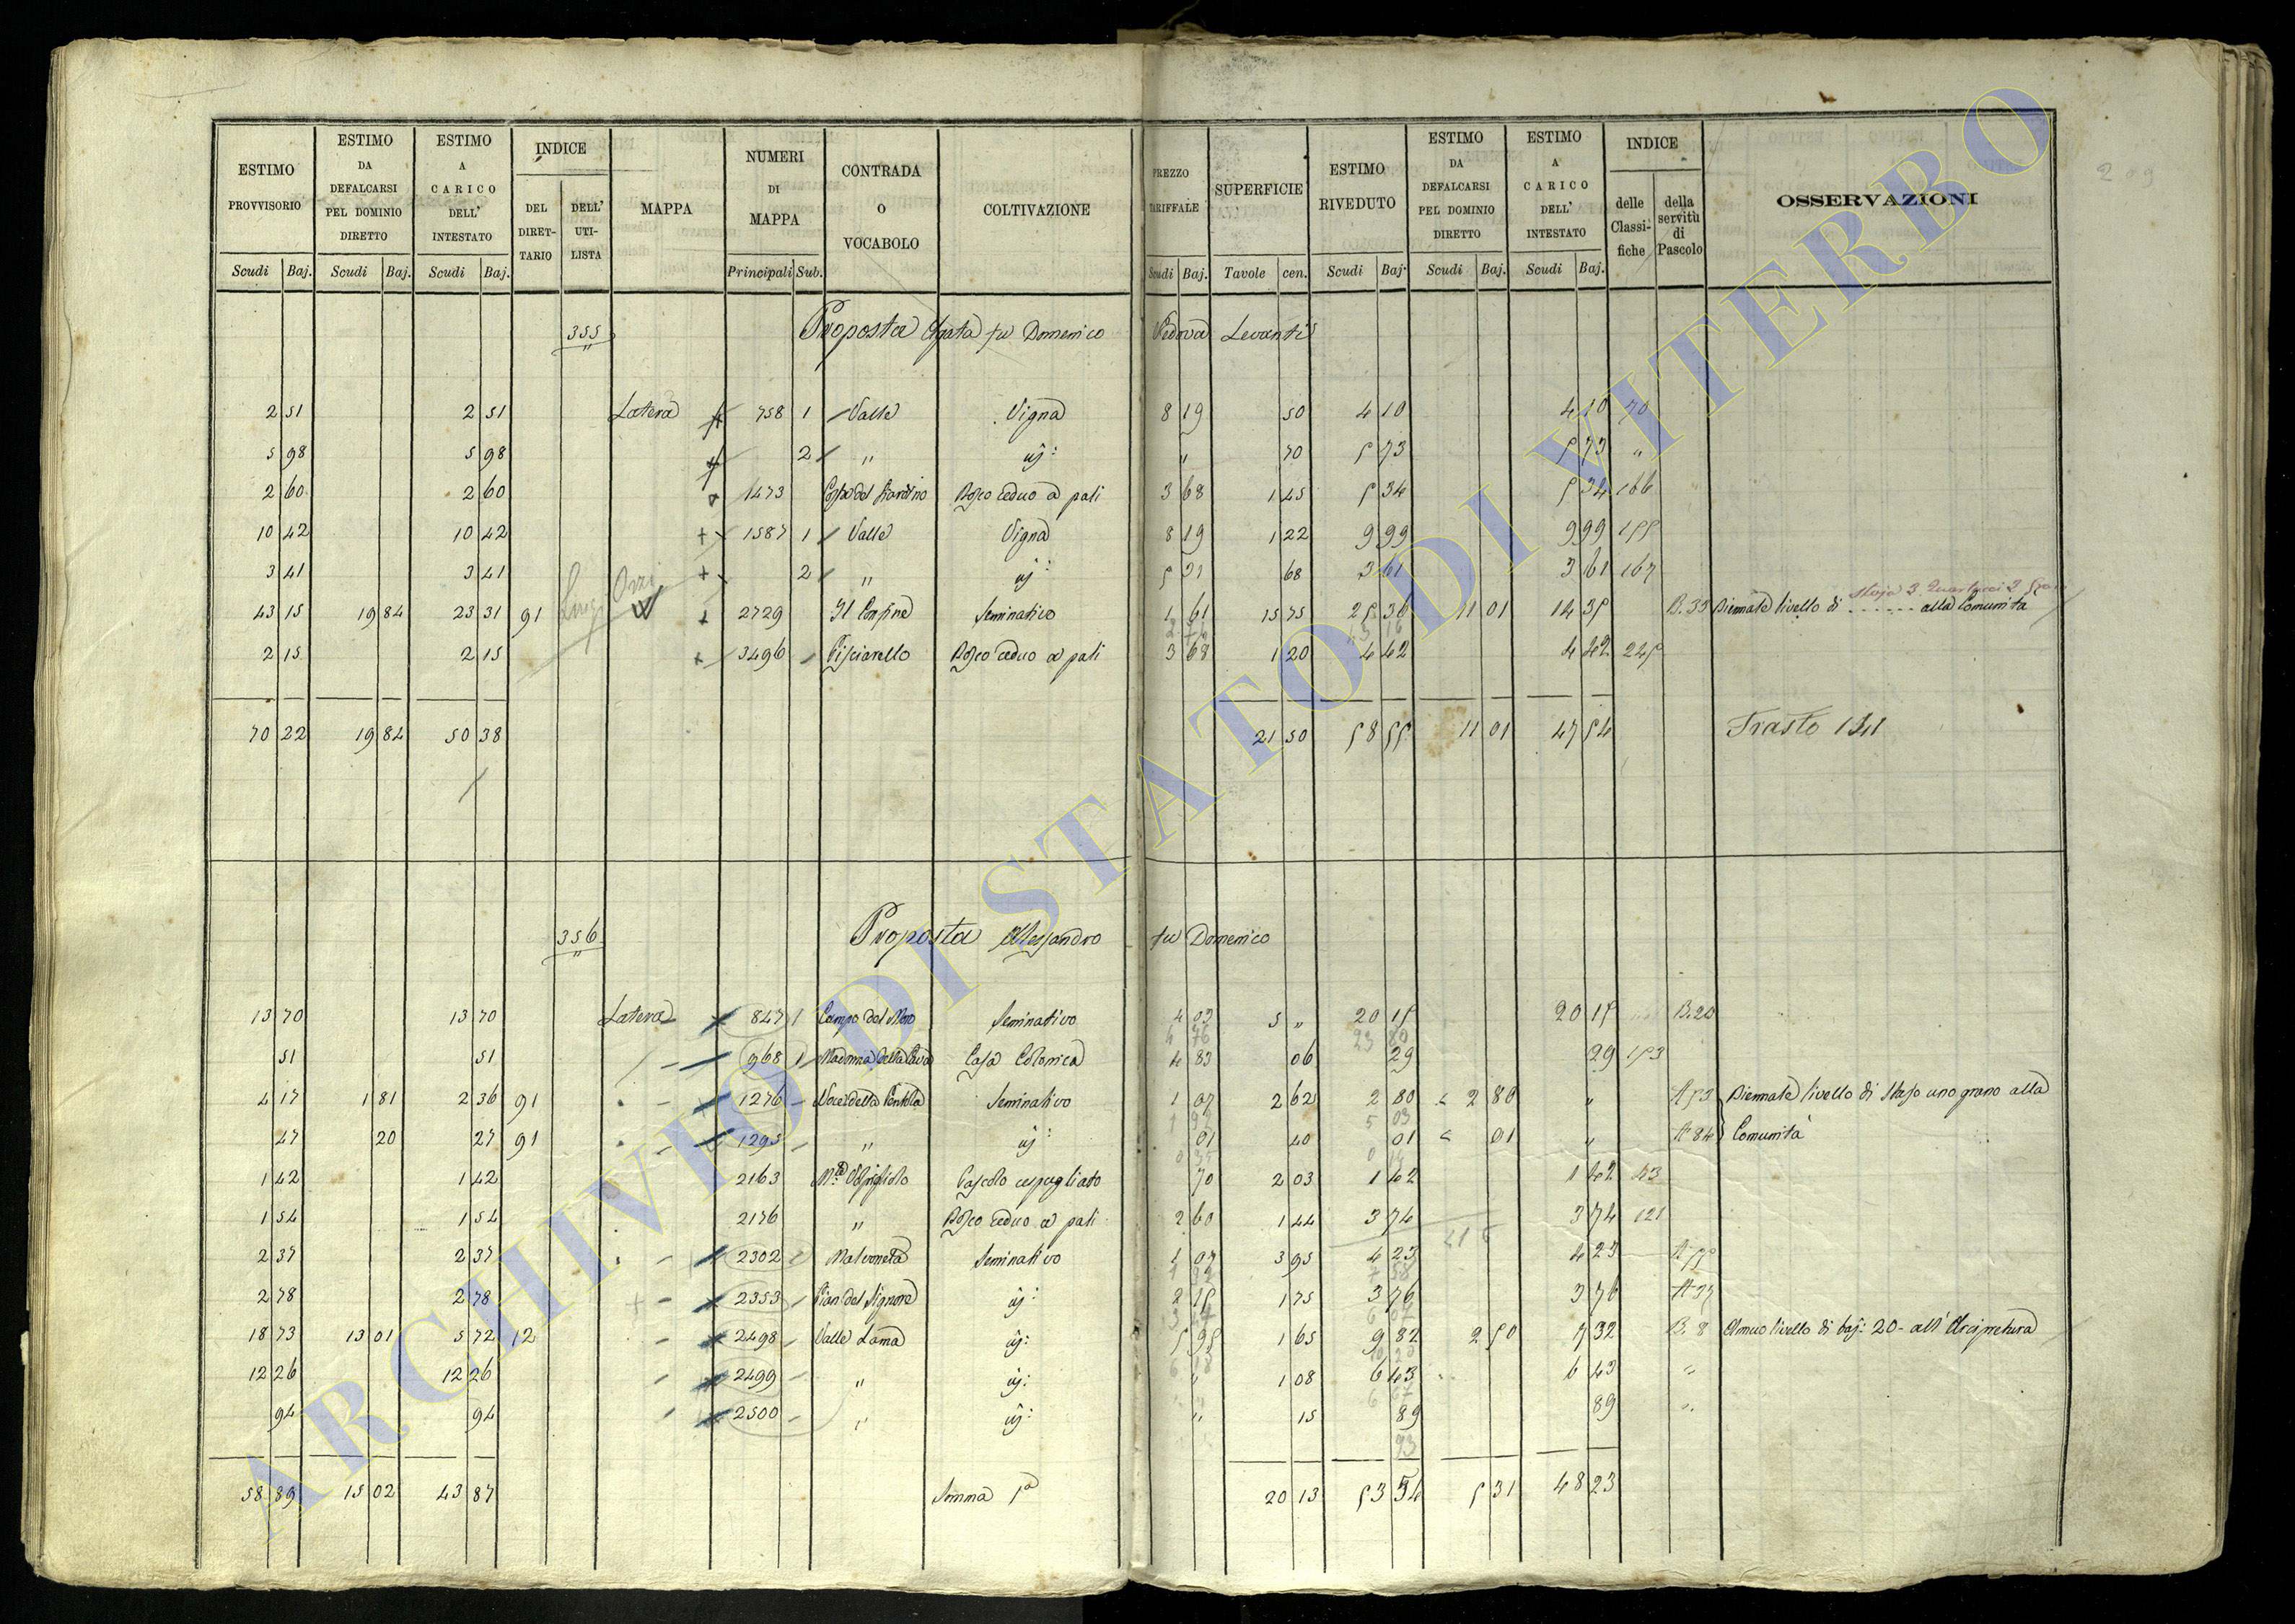 209
ESTIMO PROVVISORIO Scudi Baj. | ESTIMO DA DEFALCARSI PEL DOMINIO DIRETTO Scudi Baj. | ESTIMO A CARICO DELL' INTESTATO Scudi Baj. | INDICE DEL DIRETTARIO DELL' UTILISTA | MAPPA | NUMERI DI MAPPA Principali Sub. | CONTRADA O VOCABOLO | COLTIVAZIONE | PREZZO TARIFFALE Scudi Baj. | SUPERFICIE Tavole cen. | ESTIMO RIVEDUTO Scudi Baj. | ESTIMO DA DEFALCARSI PEL DOMINIO DIRETTO Scudi Baj. | ESTIMO A CARICO DELL' INTESTATO Scudi Baj. | INDICE delle Classifiche della servitù di Pascolo | OSSERVAZIONI
355 Proposta Agata fu Domenico Vedova Levanti
2 51 2 51 Latera 758 1 Valle Vigna 8 19 50 4 10 4 10 70
5 98 5 98 2 " id: " 70 5 73 5 73 "
2 60 2 60 1473 Costa del Giardino Bosco ceduo a pali 3 68 1 45 5 34 5 34 166
10 42 10 42 1587 1 Valle Vigna 8 19 1 22 9 99 9 99 155
3 41 3 41 2 " id: 5 31 68 3 61 3 61 167
43 15 19 84 23 31 91 2729 Il Confine Seminativo 1 61 15 75 25 36 11 01 14 35 B. 33 Biennale livello di ...... alla Comunita
2 15 2 15 3496 Pisciarello Bosco ceduo a pali 3 68 1 20 4 42 4 42 245
70 22 19 84 50 38 21 50 58 55 11 01 47 54 Trasto 141
356 Proposta Alessandro fu Domenico
13 70 13 70 Latera 847 1 Campo del Moro Seminativo 4 03 5 " 20 15 20 15 B. 20
51 51 968 1 Madonna della Cava Casa Colonica 4 83 06 29 29 153
4 17 1 81 2 36 91 1276 Noce della Pentola Seminativo 1 07 2 62 2 80 2 80 " A 53 Biennale livello di Stajo uno grano alla
47 20 27 91 1295 " id: 01 40 01 01 " A 84 Comunità
1 42 1 42 2163 Pascolo cespugliato 70 2 03 1 42 1 42 43
1 54 1 54 2176 " Bosco ceduo a pali 2 60 1 44 3 74 3 74 121
2 37 2 37 2302 Malvoneta Seminativo 1 07 3 95 4 23 4 23 A 55
2 78 2 78 2353 Pian del Signore id: 2 15 1 75 3 76 3 76 A 37
18 73 13 01 5 72 12 2498 Valle Lama id: 5 95 1 65 9 82 2 50 7 32 B. 8 Annuo livello di baj: 20 - all' Arcipretura
12 26 12 26 2499 " id: " 1 08 6 43 6 43 "
94 94 2500 " id: " 15 89 89 "
58 89 15 02 43 87 Somma 1a 20 13 53 54 5 31 48 23
ARCHIVIO DI STATO DI VITERBO